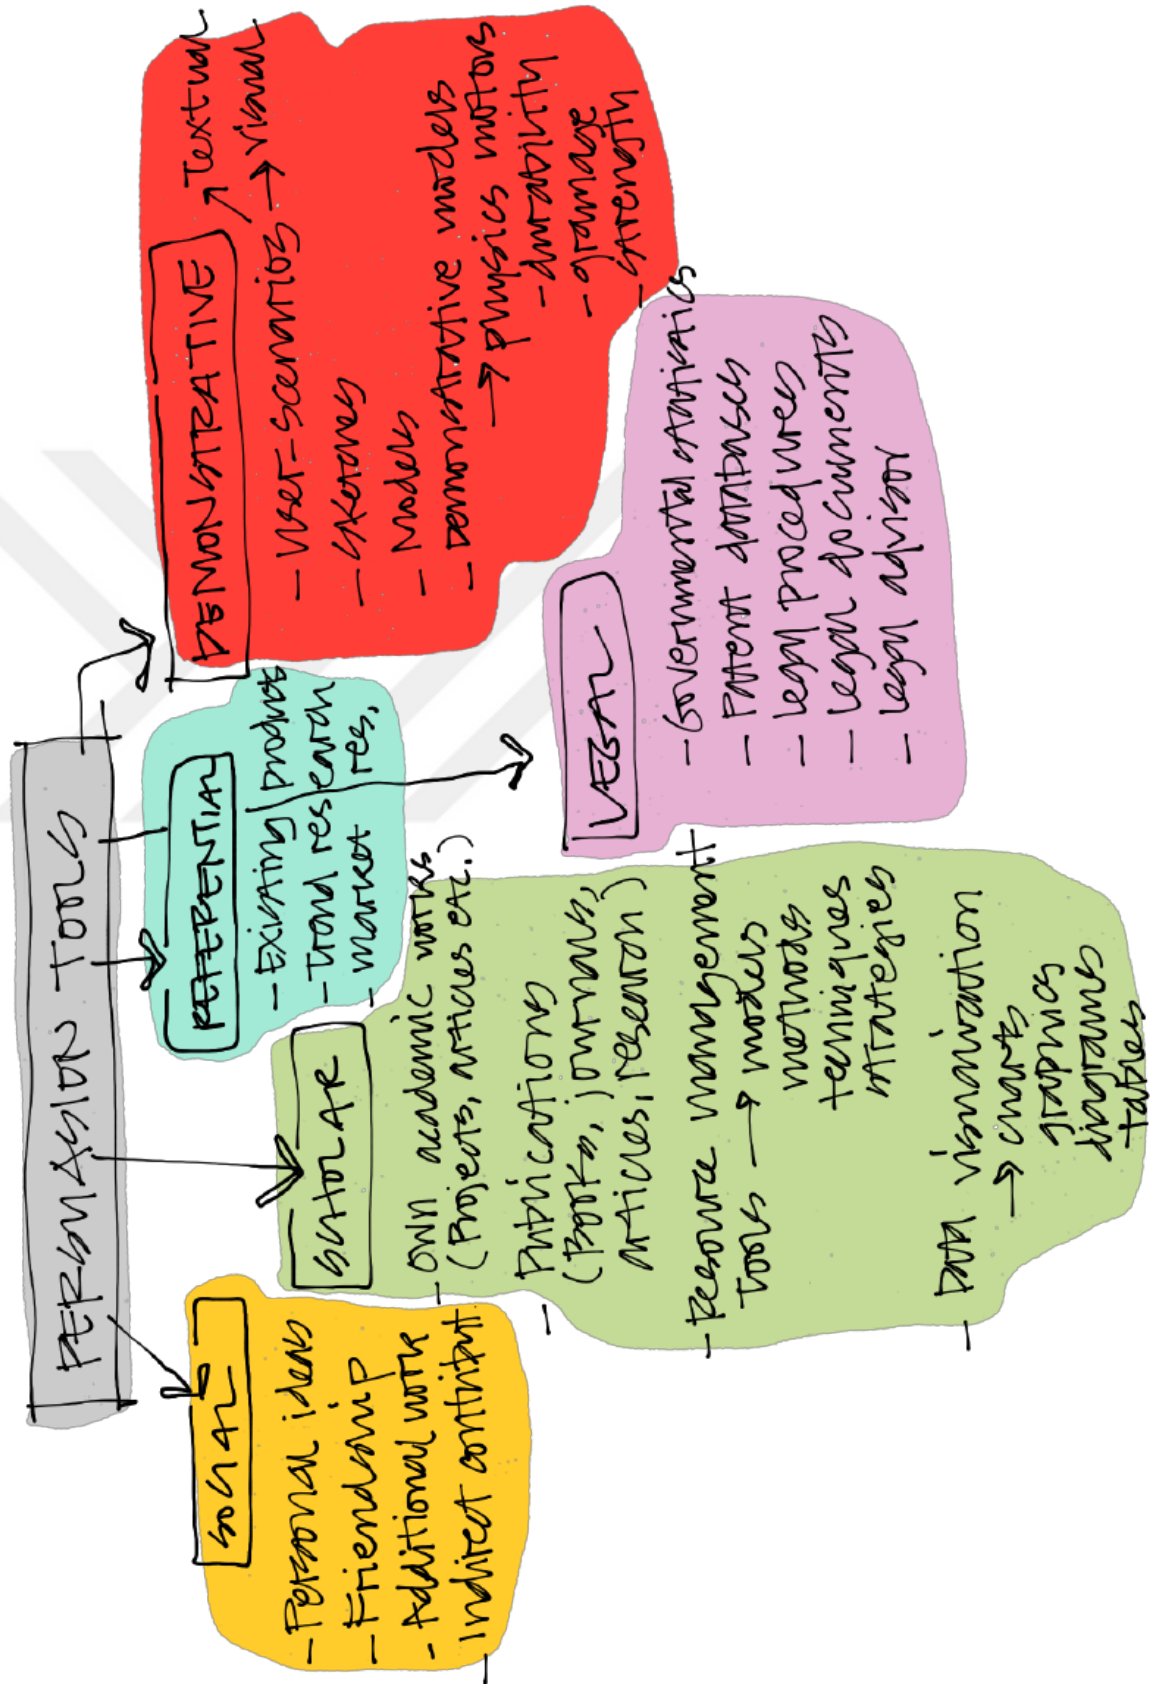 PERSUASION TOOLS
SOCIAL
- Personal ideas
- Friendship
- Additional work
- Indirect contribut
SCHOLAR
- Own academic works
(Projects, articles etc.)
- Publications
(Books, journals,
articles, research)
- Resource management
Tools → models
methods
techniques
strategies
- Data visualization
→ charts
graphics
diagrams
tables
REFERENTIAL
- Existing products
- Trend research
- market res,
LEGAL
- Governmental statistics
- Patent databases
- Legal procedures
- Legal documents
- Legal advisor
DEMONSTRATIVE
- User-Scenarios ↗ Textual
→ visual
- Sketches
- Models
- Demonstrative models
→ physics motors
- durability
- grammage
- strength